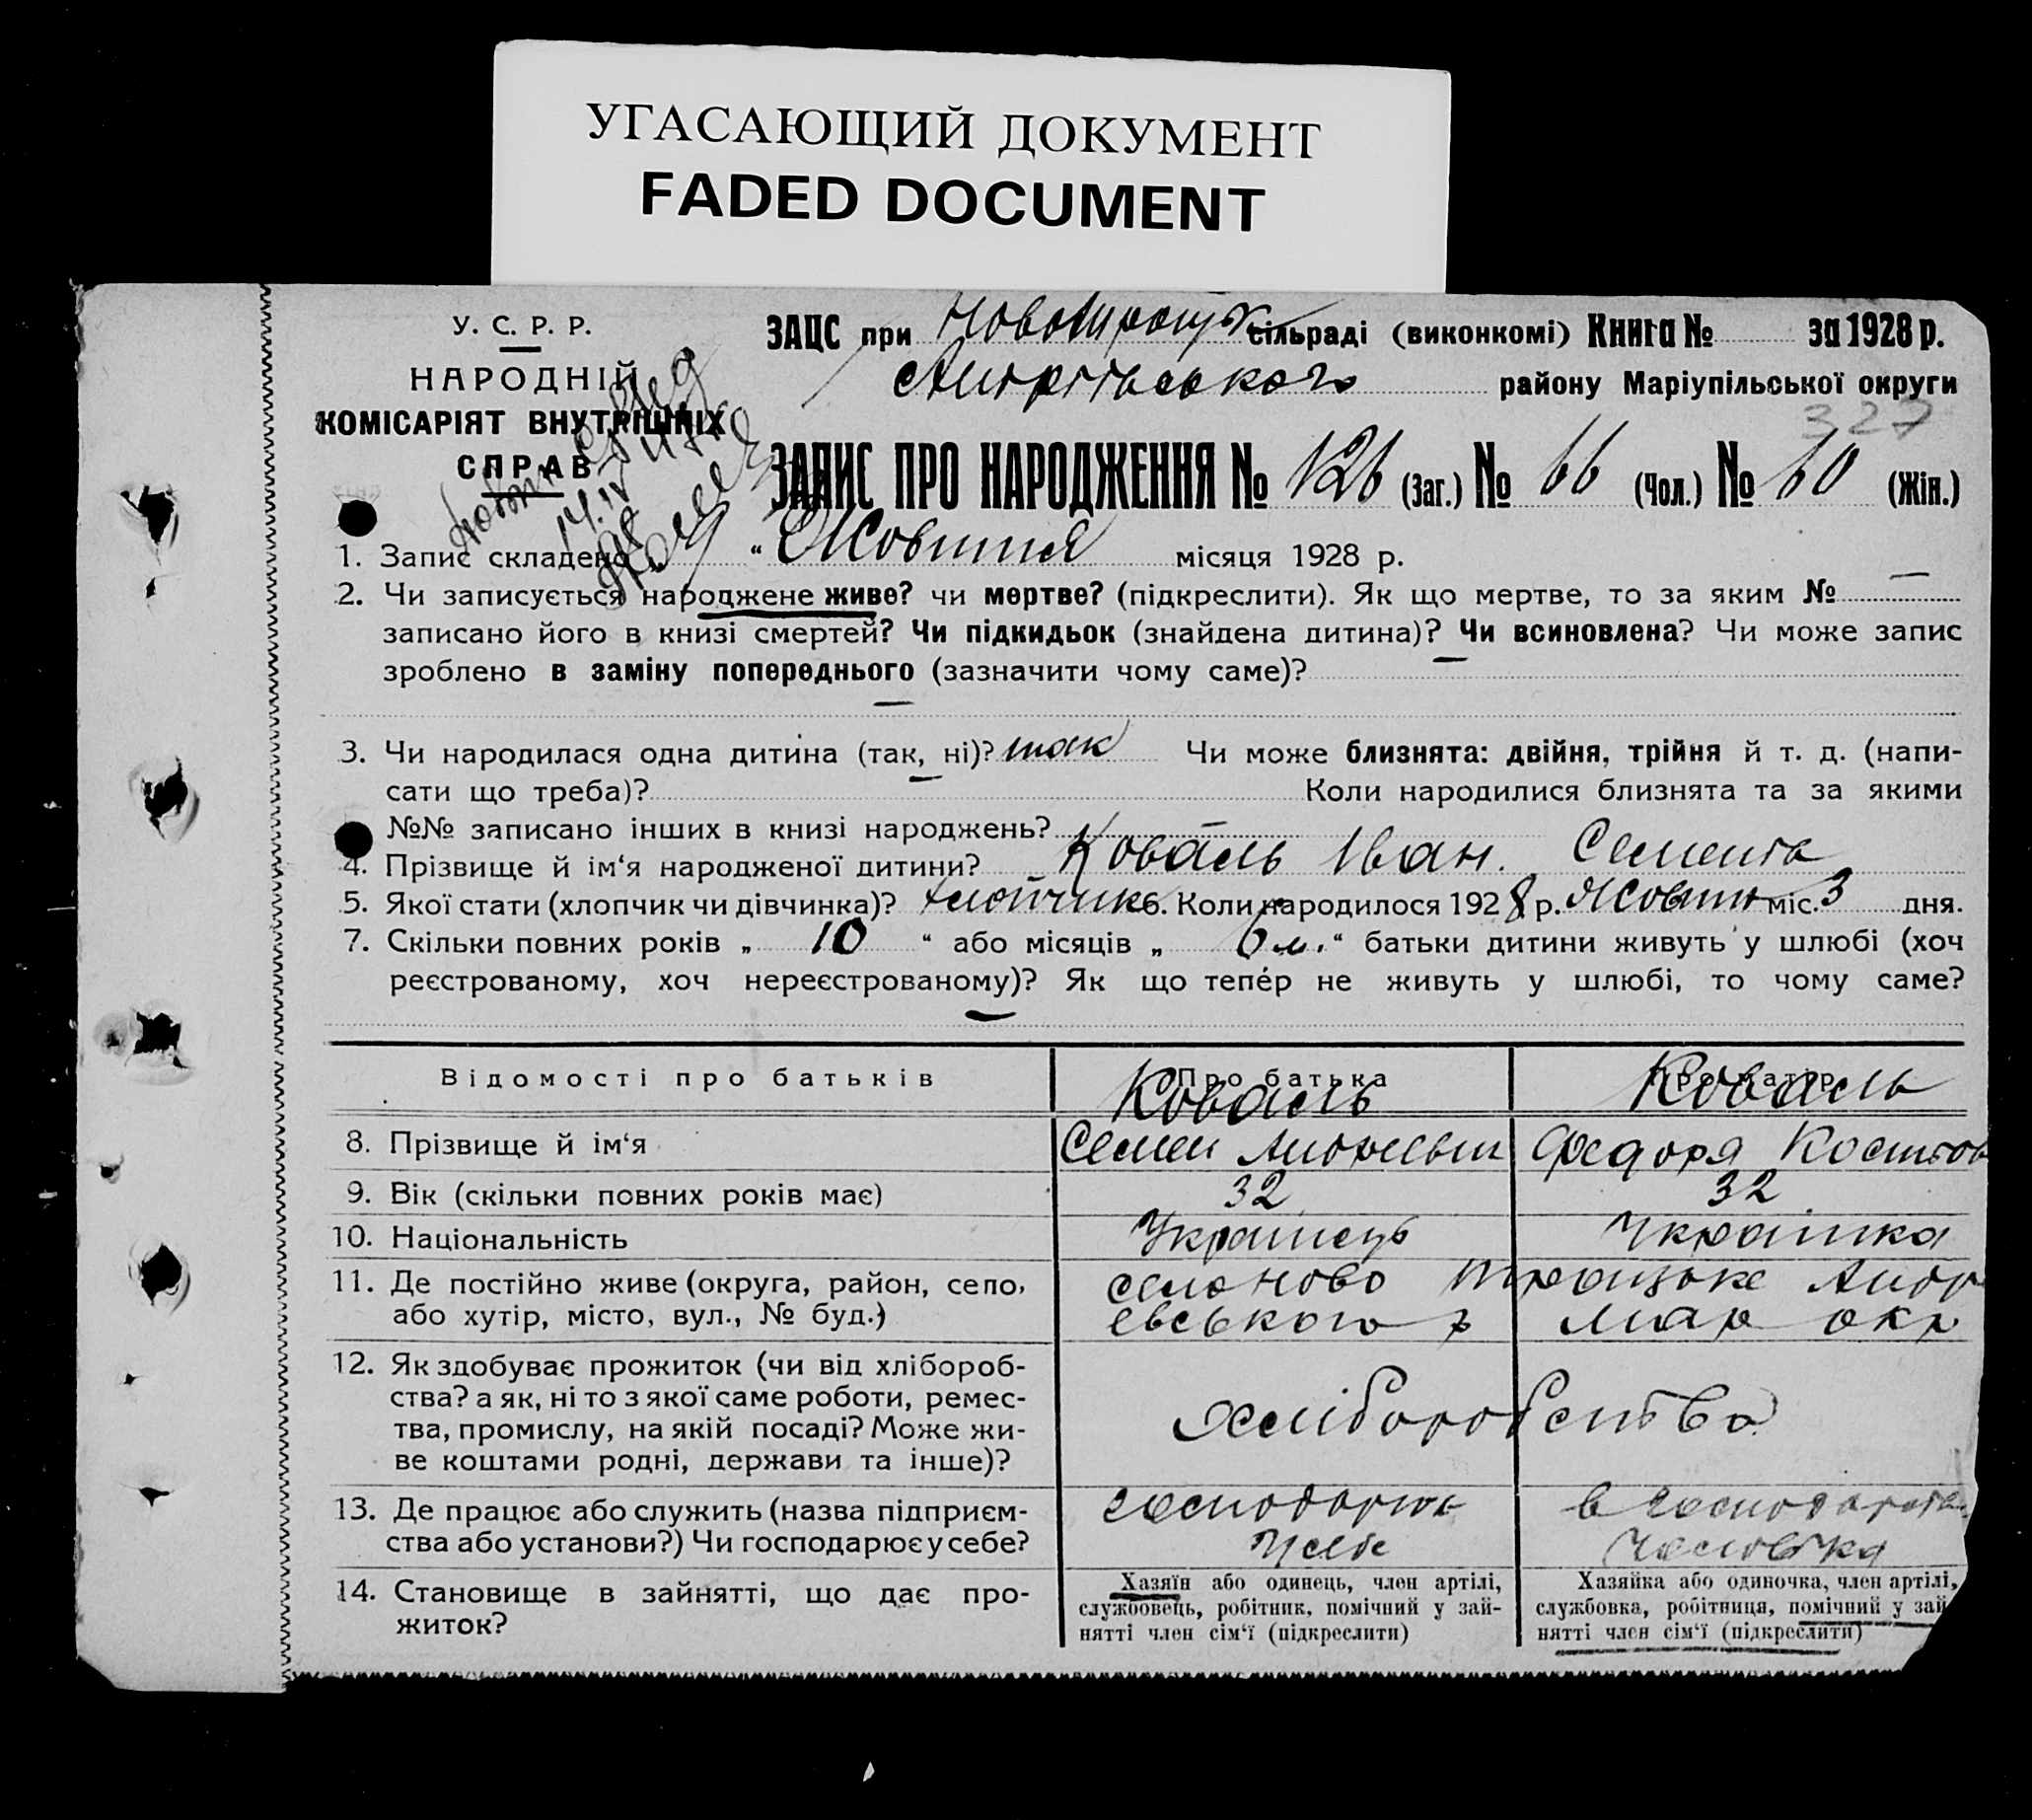 УГАСАЮЩИЙ ДОКУМЕНТ
FADED DOCUMENT
У. С. Р. Р.
НАРОДНІЙ
КОМІСАРІЯТ ВНУТРІШНІХ
СПРАВ
ЗАЦС при Новотроицьк сільраді (виконкомі) Книга № за 1928 р.
району Маріупільської округи
327
ЗАПИС ПРО НАРОДЖЕННЯ № 126 (Заг.) № 66 (Чол.) № 60 (Жін.)
1. Запис складено „ 9 “ Жовтня місяця 1928 р.
2. Чи записується народжене живе? чи мертве? (підкреслити). Як що мертве, то за яким № —
записано його в книзі смертей? Чи підкидьок (знайдена дитина)? Чи всиновлена? Чи може запис
зроблено в заміну попереднього (зазначити чому саме)?
3. Чи народилася одна дитина (так, ні)? так Чи може близнята: двійня, трійня й т. д. (напи-
сати що треба)? Коли народилися близнята та за якими
№№ записано інших в книзі народжень?
4. Прізвище й ім‘я народженої дитини? Коваль Іван. Семенов
5. Якої стати (хлопчик чи дівчинка)? хлопчик 6. Коли народилося 1928 р. Жовтн міс. 3 дня.
7. Скільки повних років „ 10 “ або місяців „ 6 м. “ батьки дитини живуть у шлюбі (хоч
реєстрованому, хоч нереєстрованому)? Як що тепер не живуть у шлюбі, то чому саме?
Відомості про батьків Про батька Про матір
Коваль Коваль
8. Прізвище й ім‘я Семен Федоря
9. Вік (скільки повних років має) 32 32
10. Національність Українець Українка
11. Де постійно живе (округа, район, село, село Ново Троицьке Андр
або хутір, місто, вул., № буд.) евського р Мар окр
12. Як здобуває прожиток (чи від хлібороб-
ства? а як, ні то з якої саме роботи, ремес-
тва, промислу, на якій посаді? Може жи-
ве коштами родні, держави та інше)?
хліборобства
13. Де працює або служить (назва підприєм- господарює в господарстві
ства або установи?) Чи господарює у себе? у себе чоловіка
14. Становище в зайнятті, що дає про-
житок?
Хазяїн або одинець, член артілі,
службовець, робітник, помічний у зай-
нятті член сім‘ї (підкреслити)
Хазяйка або одиночка, член артілі,
службовка, робітниця, помічний у зай
нятті член сім‘ї (підкреслити)